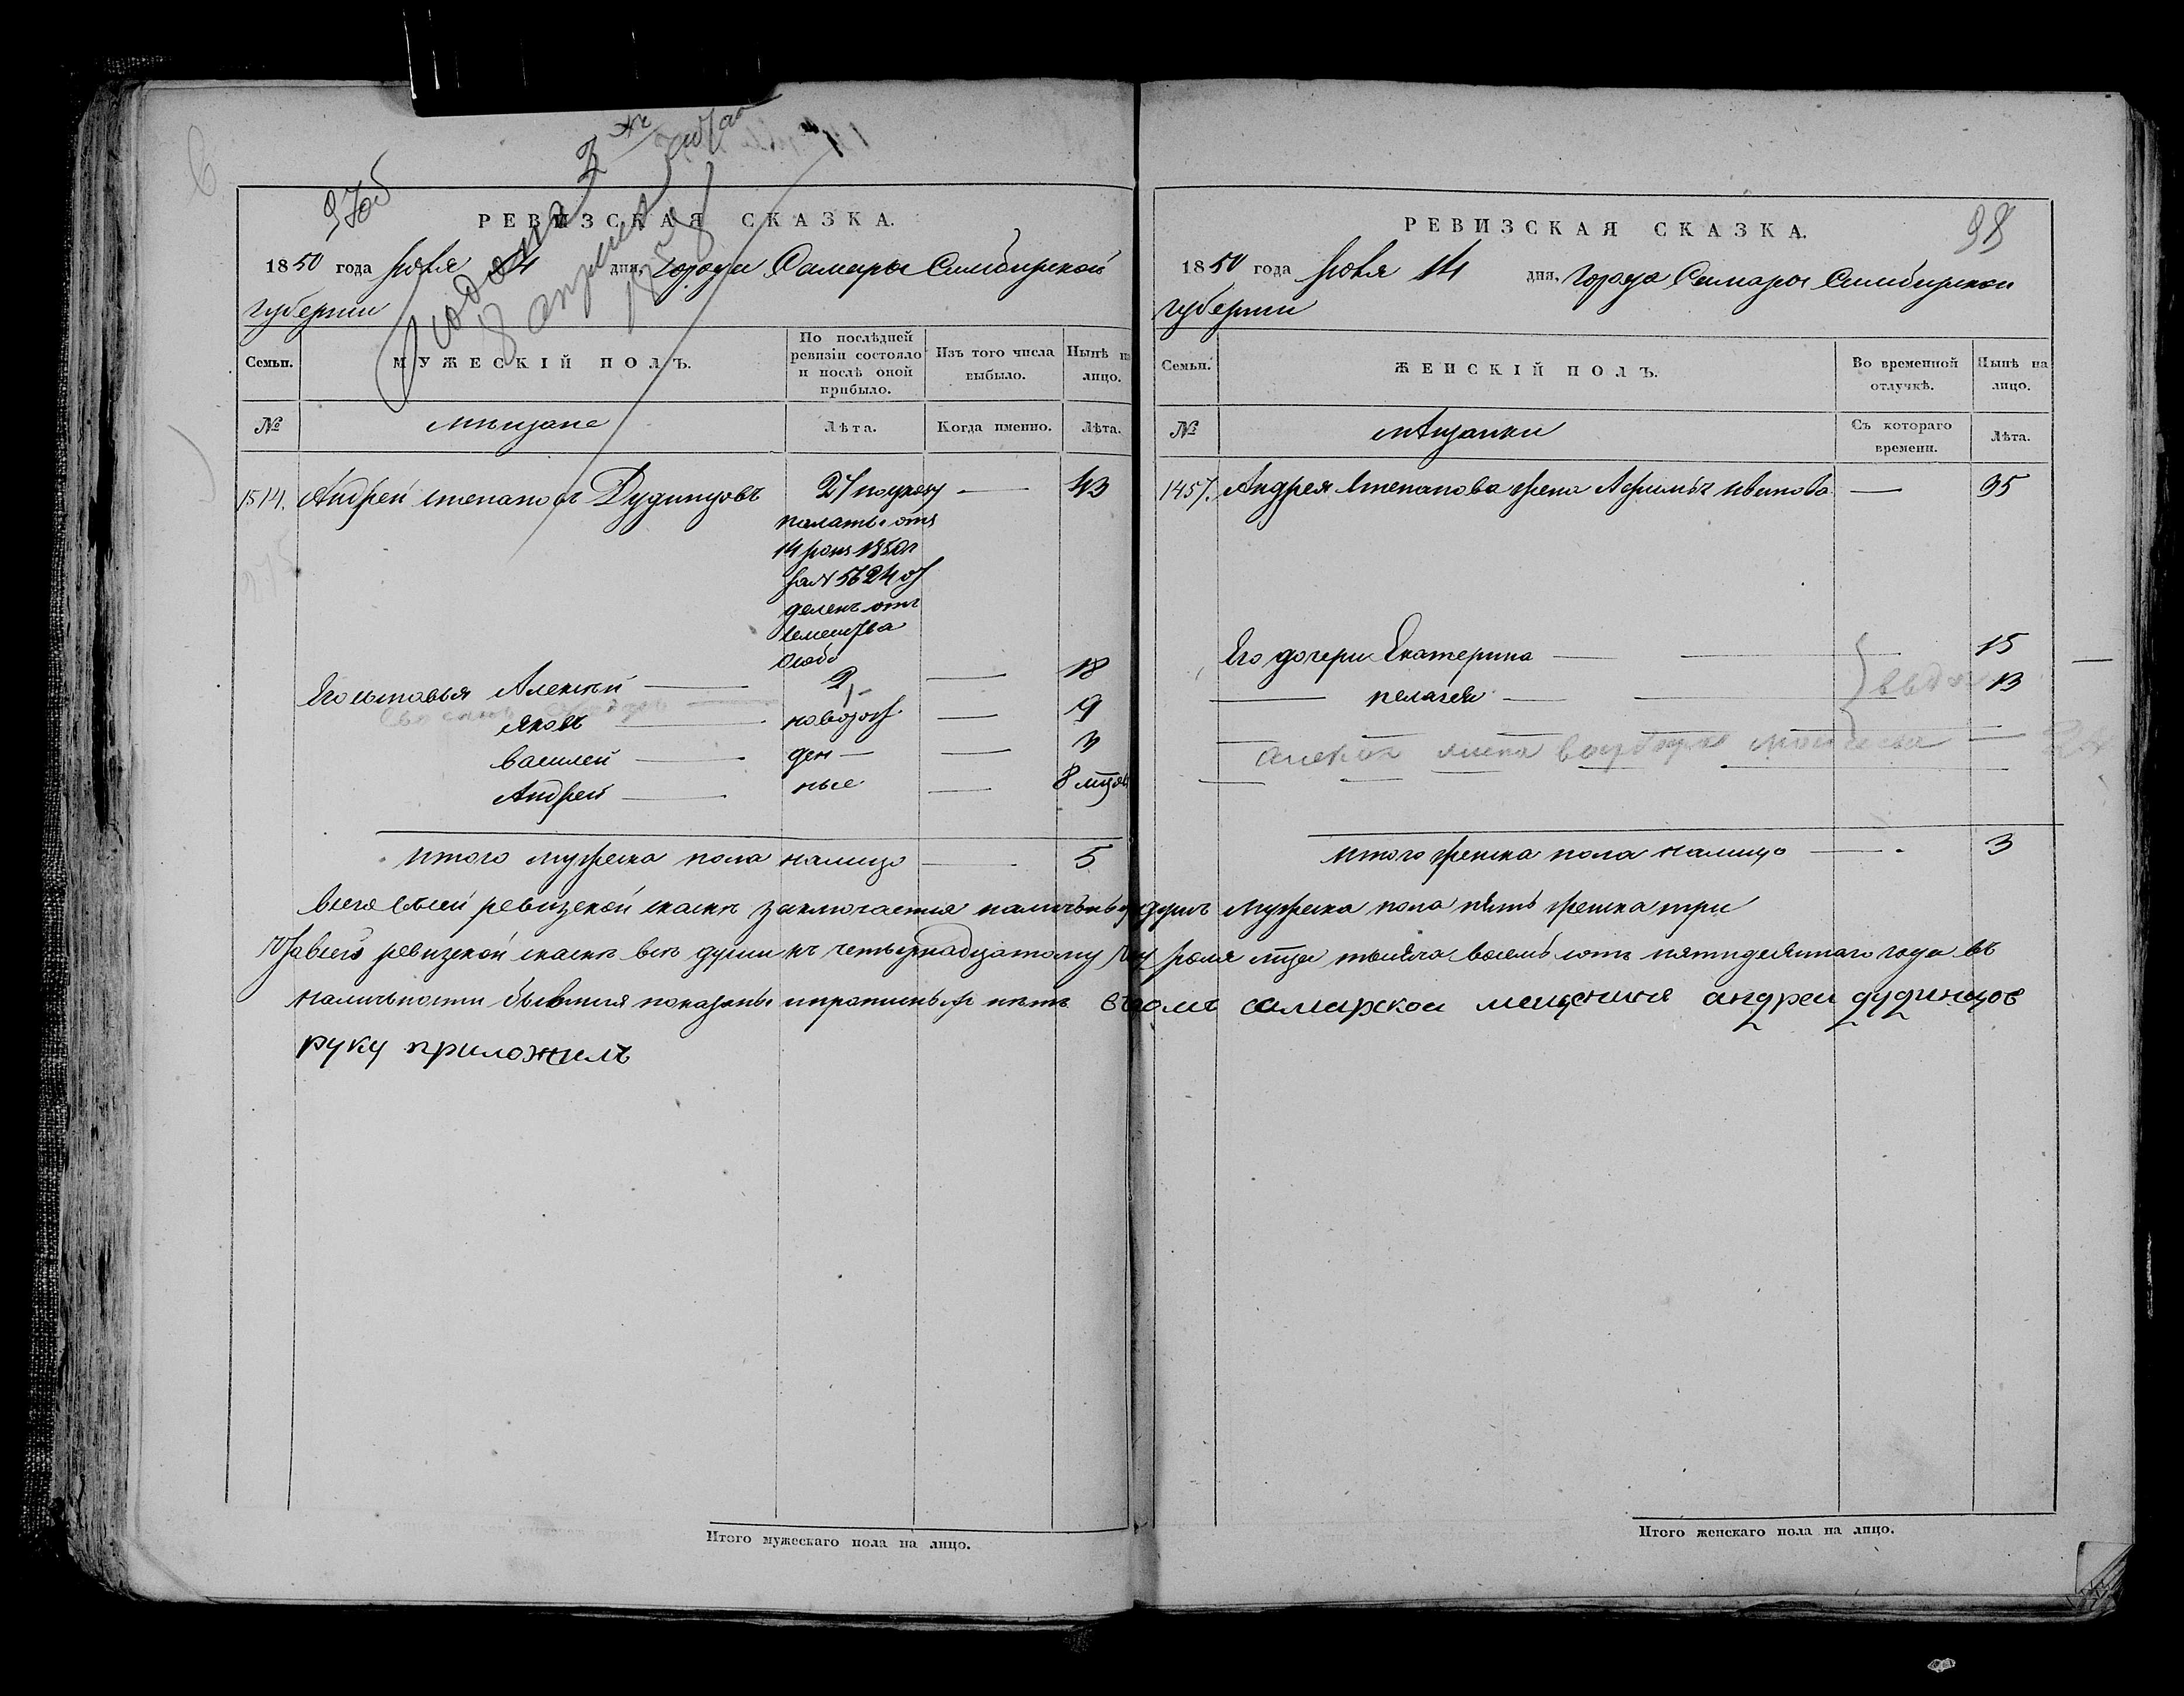 97об
Подана 2
8 апреля
РЕВИЗСКАЯ СКАЗКА.
1850 года июля 14 дня, города Самары Симбирской
губернии
Семьи.
МУЖЕСКІЙ ПОЛЪ.
По послѣдней ревизіи состояло и послѣ оной прибыло.
Изъ того числа выбыло.
Нынѣ на лицо.
№
мещане
Лѣта.
Когда именно.
Лѣта.
1514. Андрей степановъ Дудинцовъ 27 по указу — 43
палаты отъ
14 июня 1850 г
за № 5624 от
деленъ отъ
семейства
особо
Его сыновья Алексей — 2 — 18
Яковъ — новорож — 9
Василей — ден — 3
Андрей — ные — 8 мцов
итого мужеска пола налицо — 5
98
РЕВИЗСКАЯ СКАЗКА.
1850 года июля 14 дня, города Самары Симбирской
губернии
Семьи.
ЖЕНСКІЙ ПОЛЪ.
Во временной отлучкѣ.
Нынѣ на лицо.
№
мѣщанки
Съ котораго времени.
Лѣта.
1457. Андрея Степанова жена Афимья — 35
Его дочери Екатерина — 15
пелагея — 13
итого женска пола налицо — 3
Всего въ сей ревизской скаске заключается наличныхъ душъ мужеска пола пять женска три
ревизской скаске все души къ четырнадцатому июля мца тысяча восемь сотъ пятидесятаго года въ
наличности бывшия показаны и прописныхъ нетъ въ томъ самарской мещенинъ андрей дудинцов
руку приложилъ
Итого мужескаго пола на лицо.
Итого женскаго пола на лицо.